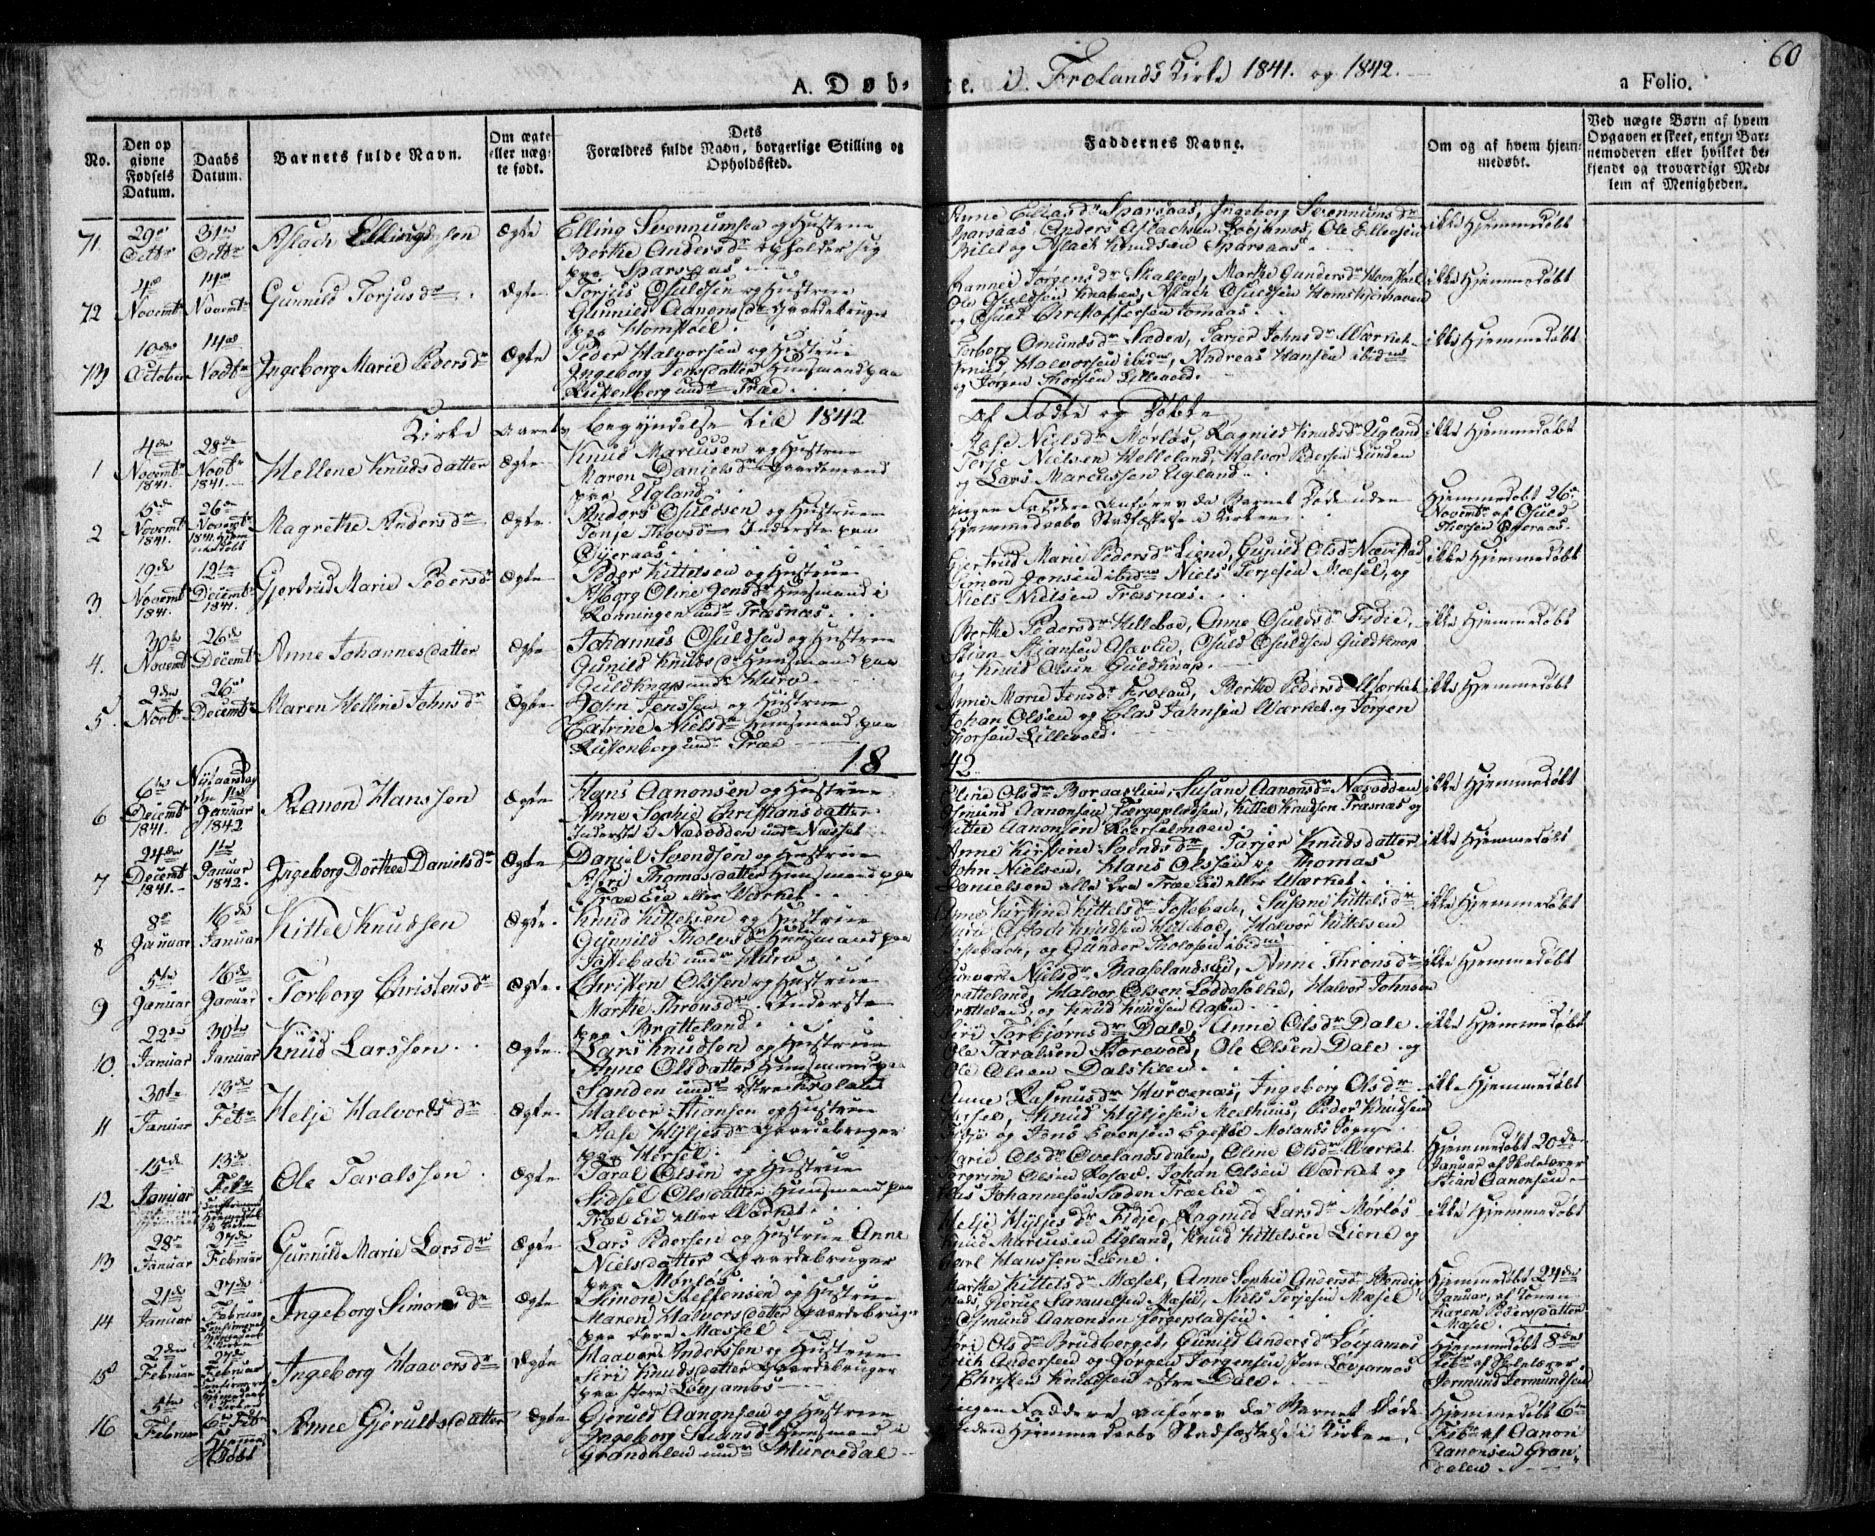 60
A. Døb- te. i Frolands Kirke 1841. og 1842.
a Folio.
No.
Den op givne Fødsels Datum.
Daabs Datum.
Barnets fulde Navn.
Om ægte eller uægte født.
Dets Forældres fulde Navn, borgerlige Stilling og Opholdssted.
Faddernes Navne.
Om og af hvem hjemmedøbt.
Ved uægte Børn af hvem Opgaven er skeet, enten Barnemoderen eller hvilket bekjendt og troværdigt Medlem af Menigheden.
71. 29de Octbr 31te Octbr Aslach Ellingsen Ægte
Elling Svennumsen og Hustrue
Berthe Andersdr opholder sig
paa Sparsaas
Anne Eliasdr Sparsaas, Ingeborg Svennumsdr
Sparsaas, Anders Aslachsen Løvjomås, Ole Ellevsen
Bilet og Aslach Knudsen Sparsaas.
ikke Hjemmedøbt
72 4de Novembr 14de Novembr Gunnild Torjusdr Ægte
Torjus Osuldsen og Hustrue
Gunnild Aanonsdr Gaardebruger
paa Homstøel.
Jørgensdr Marthe Gundersdr Homstøel
Ole Osuldsen Knaben, Aslach Osuldsen
og Osuld Christoffersen
ikke Hjemmedøbt
73 10de October 14de Novbr Ingeborg Marie Pedersdr Ægte
Peder Halvorsen og Hustrue
Ingeborg Jensdatter Huusmand paa
Risenberg undr Træe.
Torborg Omundsdr Saden, Tarjer Johnsdr Værket
Halvorsen ibidm, Andreas Hansen ibidem
og Jørgen Thorsen Lillevold.
ikke Hjemmedøbt
Kirke Aarets begyndelse til 1842 af Fødte og Døbte
1 4de Novembr 1841. 28de Novbr 1841. Hellene Knudsdatter Ægte
Knud Marcussen og Hustrue
Maren Danielsdr Gaardemand
paa Ugland.
Aase Nielsdr Mørløs, Ragnild Knudsdr Ugland
Terje Nielsen Helleland, Halvor Pedersen Linden
og Lars Marcussen Ugland.
ikke Hjemmedøbt
2 Novembr 1841. 26de Novembr 1841. Magrethe Andersdr Ægte
Anders Osuldsen og Hustrue
Tonje Thovsdr Inderste paa
Ingen Faddere anføres da Barnet døde uden
Hjemmedaabs Stadfæstelse i Kirken.
Hjemmedøbt 26de
Novembr af Osuld
Thorsen
3. 19de Novembr 1841. 12te Decembr 1841. Gjertrud Marie Pedersdr Ægte
Peder Kittelsen og Hustrue
Asborg Oline Jensdr Huusmand i
Rønningen undr Træsnæs.
Gjertrud Marie Pedersdr Liene, Gunild Olsdr Nævistad
Simon Jensen ibidm Niels Terjesen Mæsel, og
Niels Nielsen Træsnæs.
ikke Hjemmedøbt
4. 30te Novembr 26de Decembr Anne Johannesdatter Ægte
Johannes Osuldsen og Hustrue
Gunild Knudsdr Huusmand paa
Guldknap undr Hurv.
Berthe Pedersdr Helleboe, Anne Osulsdr Fidje,
Stian Stiansen Osuld Osuldsen Guldknap
og Knud Olsen Guldknap.
ikke Hjemmedøbt
5. 2den Novbr 26de Decembr Maren Helline Johnsdr Ægte
John Jensen og Hustrue
Catrine Nielsdr Huusmand paa
Risenberg undr Træe
Anne Marie Jensdr Froland, Berthe Pedersdr Værket
Johan Olsen og Elas Johnsen Værket og Jørgen
Thorsen Lillevold.
ikke Hjemmedøbt
18 42
6 6te Decembr 1841. Nytaarsdag den 1ste Januar 1842 Aanon Hanssen Ægte
Hans Aanonsen og Hustrue
Anne Sophie Christiansdatter
Inderste i Næsodden undr
Oline Olsdr Boraaslien, Susane Aanonsdr Næsodden
Osmund Aanonsen Færgepladsen, Kittel Knudsen Træsnæs og
Kittel Aanonsen
ikke Hjemmedøbt
7 24de Decembr 1841. 1ste Januar 1842. Ingeborg Dorthea Danielsdr Ægte
Daniel Svendsen og Hustrue
Thomasdatter Huusmand paa
Træe Eie eller Værket.
Anne Kirstine Svendsdr, Tarjer Knudsdatter
John Nielsen, Hans Olsen og Thomas
Danielsen alle fra Træe Eie eller Værket.
ikke Hjemmedøbt
8 8de Januar 16de Januar Kittel Knudsen Ægte
Knud Kittelsen og Hustrue
Gunnild Tholvsdr Huusmand paa
Jossebach undr Hurv
Anne Kirstine Kittelsdr Jossebach, Susane Kittelsdr
Hurv Aslach Knudsen Helleboe, Halvor Kittelsen
Jossebach, og Gunder Tholvsen ibidm
ikke Hjemmedøbt
9 5te Januar 16de Januar Torborg Christensdr Ægte
Christen Olsen og Hustrue
Marthe Thronsdr Inderste
paa Bratteland.
Gunvor Nielsdr Baaselandslid, Anne Thronsdr
Bratteland, Halvor Olsen Halvor Johnsen
Bratteland, og Knud Knudsen Aasen
ikke Hjemmedøbt
10. 22de Januar 30te Januar Knud Larssen Ægte
Lars Knudsen og Hustrue
Anne Olsdatter Huusmand paa
Sanden undr østre Froland
Siri Torbjørnsdr Dale, Anne Olsdr Dale
Ole Taralsen Storevold, Ole Olsen Dale og
Ole Olsen Dalstølen
ikke Hjemmedøbt
11 30te Januar 13de Febr Helje Halvorsdr Ægte
Halvor Stiansen og Hustrue
Aase Hyljesdr Gaardebruger
paa Hersel.
Anne Rasmusdr Hurvenæs, Ingeborg Olsdr
Hersel, Knud Hyljesen Mælhuus, Peder Knudsen
Fidje og Jens Evensen Egelie Molands Sogn.
ikke Hjemmedøbt
12 15de Januar 13de Febr Ole Taralssen Ægte
Taral Olsen og Hustrue
Sidsel Olsdatter Huusmand paa
Træe Eie eller Værket.
Marie Olsdr Øvelandsdalen, Oline Olsdr Værket
Johan Olsen Værket og
Johannesen Saden Træe Eie
Hjemmedøbt 20de
Januar af Skolelærer
Stian Aanonsen
13 28de Januar 27de Februar Gunnild Marie Larsdr Ægte
Lars Pedersen og Hustrue Anne
Nielsdatter Gaardebruger
paa Mørløs.
Helje Hyljesdr Fidje, Ragnild Larsdr Mørløs
Knud Marcussen Ugland, Knud Kittelsen Liene og
Carl Hanssen Liene.
ikke Hjemmedøbt
14 21de Januar 27de Februar Ingeborg Simonsdr Ægte
Simon Steffensen og Hustrue
Maren Halvorsdatter Gaardebruger
paa Mæsel.
Marthe Kittelsdr Mæsel, Anne Sophie Andersdr
Samuelsen Mæsel, Niels Terjesen Mæsel
Osmund Aanonsen Færgepladsen.
Hjemmedøbt 24de
Januar, af Konen
Karen Pedersdatter
Mæsel.
15 2den Februar 27de Februar Ingeborg Haavorsdr Ægte
Haavor Anderssen og Hustrue
Siri Knudsdatter Gaardebruger
paa store Løvjomås
Siri Olsdr Brudberget, Gunild Andersdr Løvjomås
Erich Andersen og Jørgen Jørgensen store Løvjomås
og Christen Knudsen østre Dale.
Hjemmedøbt 8de
Febr af Skolelærer
Jermund Jermundsen
16 5te Februar 6te Febr Hjemmedøbt Anne Gjeruldsdatter Ægte
Gjeruld Aanonsen og Hustrue
Ingeborg Huusmand i
Grandalen undr Murvedal
Ingen Faddere anføres da Barnet døde
uden Hjemmedaabs Stadfæstelse i Kirken.
Hjemmedøbt 6te
Febr af Aanon
Aanonsen Grandalen